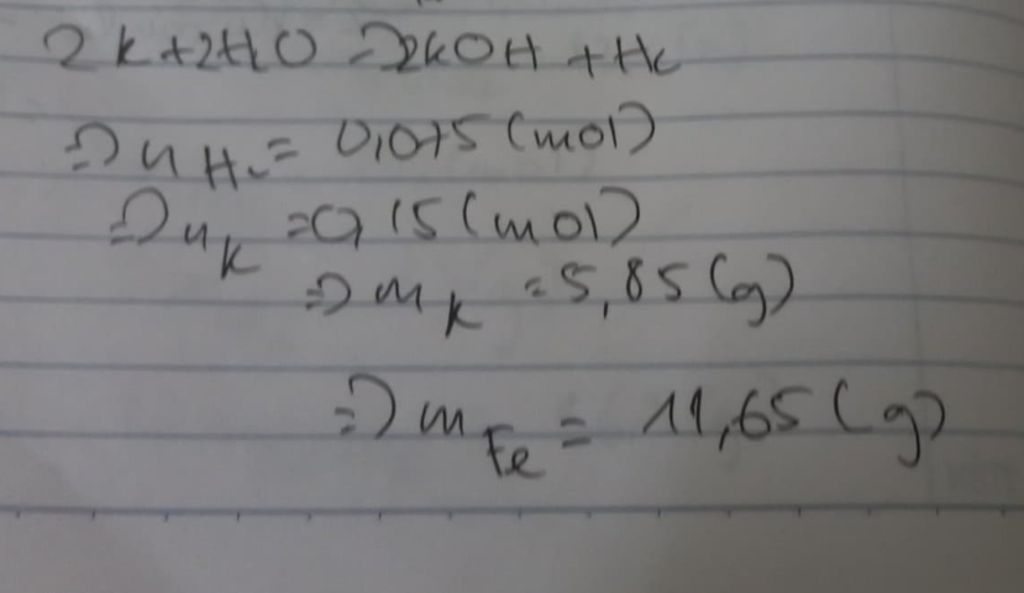 2K+2H2O => 2KOH + H2
=> nH2 = 0,075 (mol)
=> nK = 0,15 (mol)
=> mK = 5,85 (g)
=> mFe = 11,65 (g)